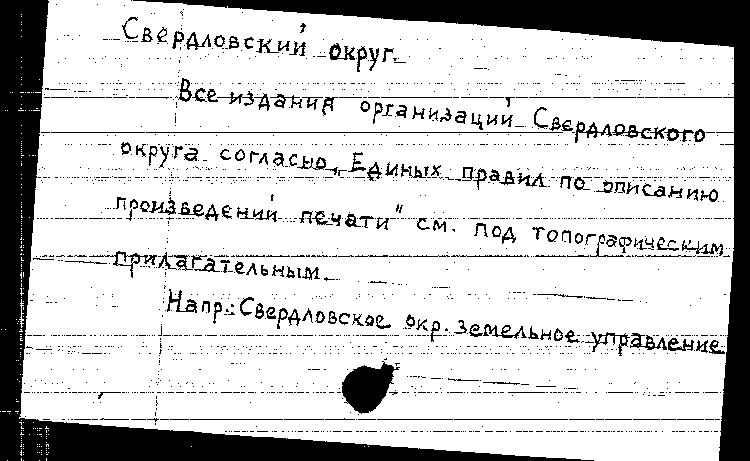 Свердловский округ.
Все издания организаций Свердловского
округа согласно „Единых правил по описанию
произведений печати" см. под топографическим
прилагательным.
Напр.: Свердловское окр. земельное управление